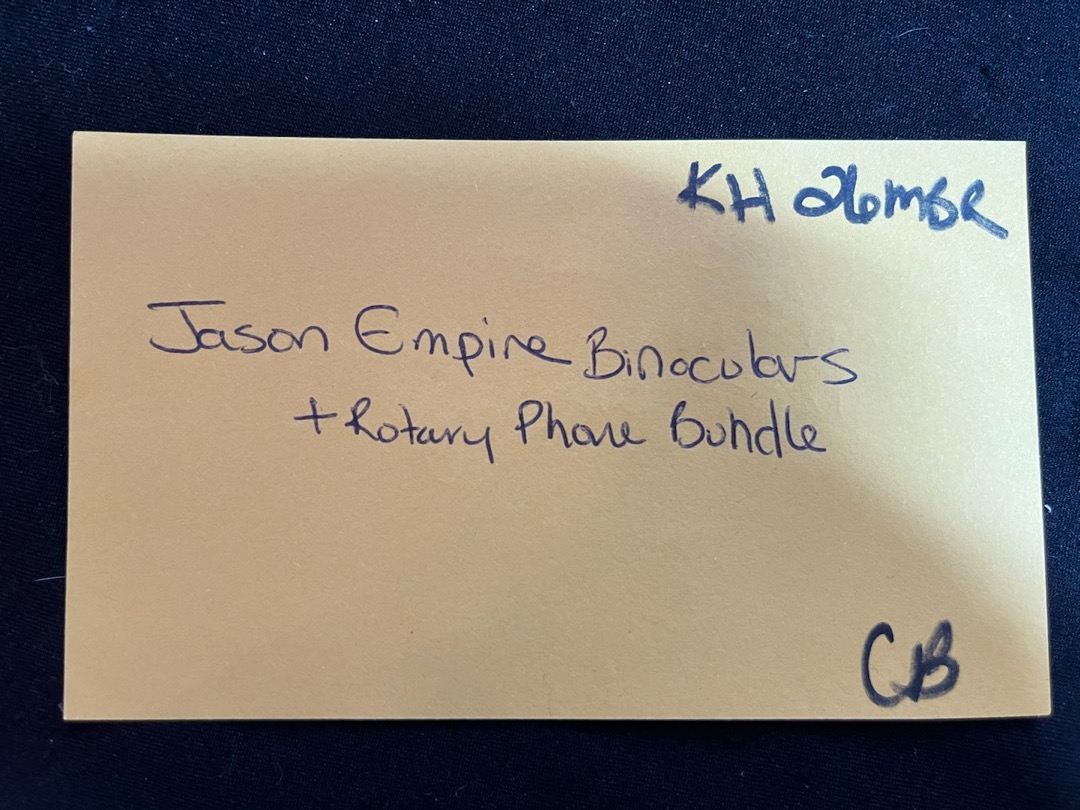 KH 26MBR
Jason Empire Binoculars
+ Rotary Phone Bundle
CB